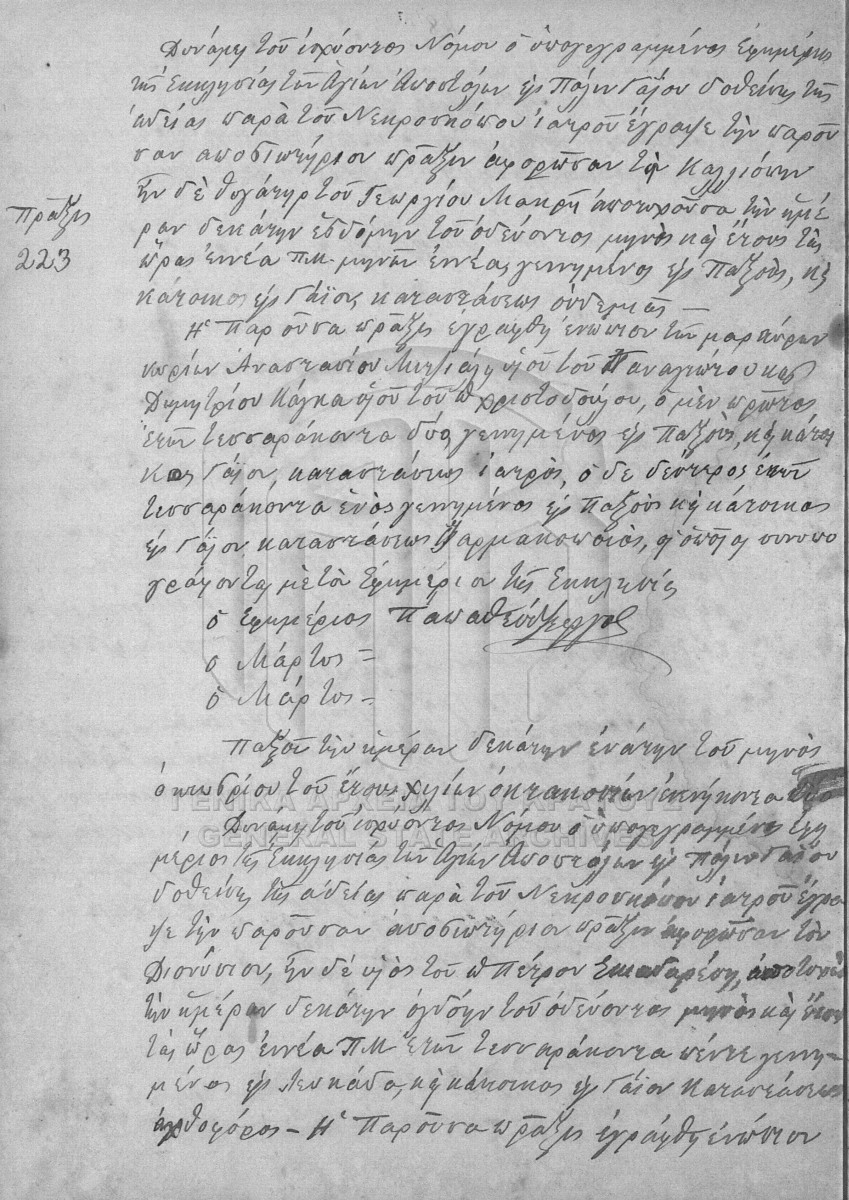 Δυνάμει τοῦ ἰσχύοντος Νόμου ὁ ὑπογεγραμμένος Ἐφημέριος
τῆς Ἐκκλησίας τῶν Ἁγίων Ἀποστόλων εἰς Πόλιν Γαΐου δοθείσης τῆς
ἀδείας παρὰ τοῦ Νεκροσκόπου ἰατροῦ ἔγραψε τὴν παροῦ
σαν ἀποβιωτήριον πρᾶξιν ἀφορῶσαν τὴν Καλλιόπην
Πρᾶξις
223
ἦν δὲ θυγάτηρ τοῦ Γεωργίου Μακρῆ ἀποτυχοῦσα τὴν ἡμέ
ραν δεκάτην ἑβδόμην τοῦ ὁδεύοντος μηνὸς καὶ ἔτους τὰς
ὥρας ἐννέα Π.Μ. μηνῶν ἐννέα, γεννημένος εἰς Παξοὺς, καὶ
κάτοικος εἰς Γάϊον, καταστάσεως οὐδεμιᾶς —
Ἡ Παροῦσα πρᾶξις ἐγράφθη ἐνώπιον τῶν μαρτύρων
κυρίων Ἀναστασίου υἱοῦ τοῦ Παναγιώτου καὶ
Δημητρίου Κάγκα υἱοῦ τοῦ π Χριστοδούλου, ὁ μὲν πρῶτος
ἐτῶν τεσσαράκοντα δύο, γεννημένος εἰς Παξοὺς, καὶ κάτοι
κος Γάϊον, καταστάσεως ἰατρὸς, ὁ δὲ δεύτερος ἐτῶν
τεσσαράκοντα ἑνὸς γεννημένος εἰς Παξοὺς καὶ κάτοικος
εἰς Γάϊον καταστάσεως Φαρμακοποιὸς, οἱ ὁποῖοι συνυπο
γράφονται μὲ τὸν Ἐφημέριον τῆς Ἐκκλησίας
ὁ Ἐφημέριος
ὁ Μάρτυς =
ὁ Μάρτυς =
Παξοῖ τὴν ἡμέραν δεκάτην ἐνάτην τοῦ μηνὸς
ὀκτωβρίου τοῦ ἔτους χιλίων ὀκτακοσίων ἐνενήκοντα δύο
ΓΕΝΙΚΑ ΑΡΧΕΙΑ ΤΟΥ ΚΡΑΤΟΥΣ
GENERAL STATE ARCHIVES
Δυνάμει τοῦ ἰσχύοντος Νόμου ὁ ὑπογεγραμμένος ἐφη
μέριος τῆς Ἐκκλησίας τῶν Ἁγίων Ἀποστόλων εἰς Πόλιν Γαΐου
δοθείσης τῆς ἀδείας παρὰ τοῦ Νεκροσκόπου ἰατροῦ ἔγρα
ψε τὴν παροῦσαν ἀποβιωτήριον πρᾶξιν ἀφορῶσαν τὸν
Διονύσιον, ἦν δὲ υἱὸς τοῦ π Πέτρου
τὴν ἡμέραν δεκάτην ὀγδόην τοῦ ὁδεύοντος μηνὸς καὶ ἔτους
τὰς ὥρας ἐννέα Π.Μ ἐτῶν τεσσαράκοντα πέντε γεννη
μένος εἰς Λευκάδα, καὶ κάτοικος εἰς Γάϊον καταστάσεως
ἀχθοφόρος — Ἡ Παροῦσα πρᾶξις ἐγράφθη ἐνώπιον